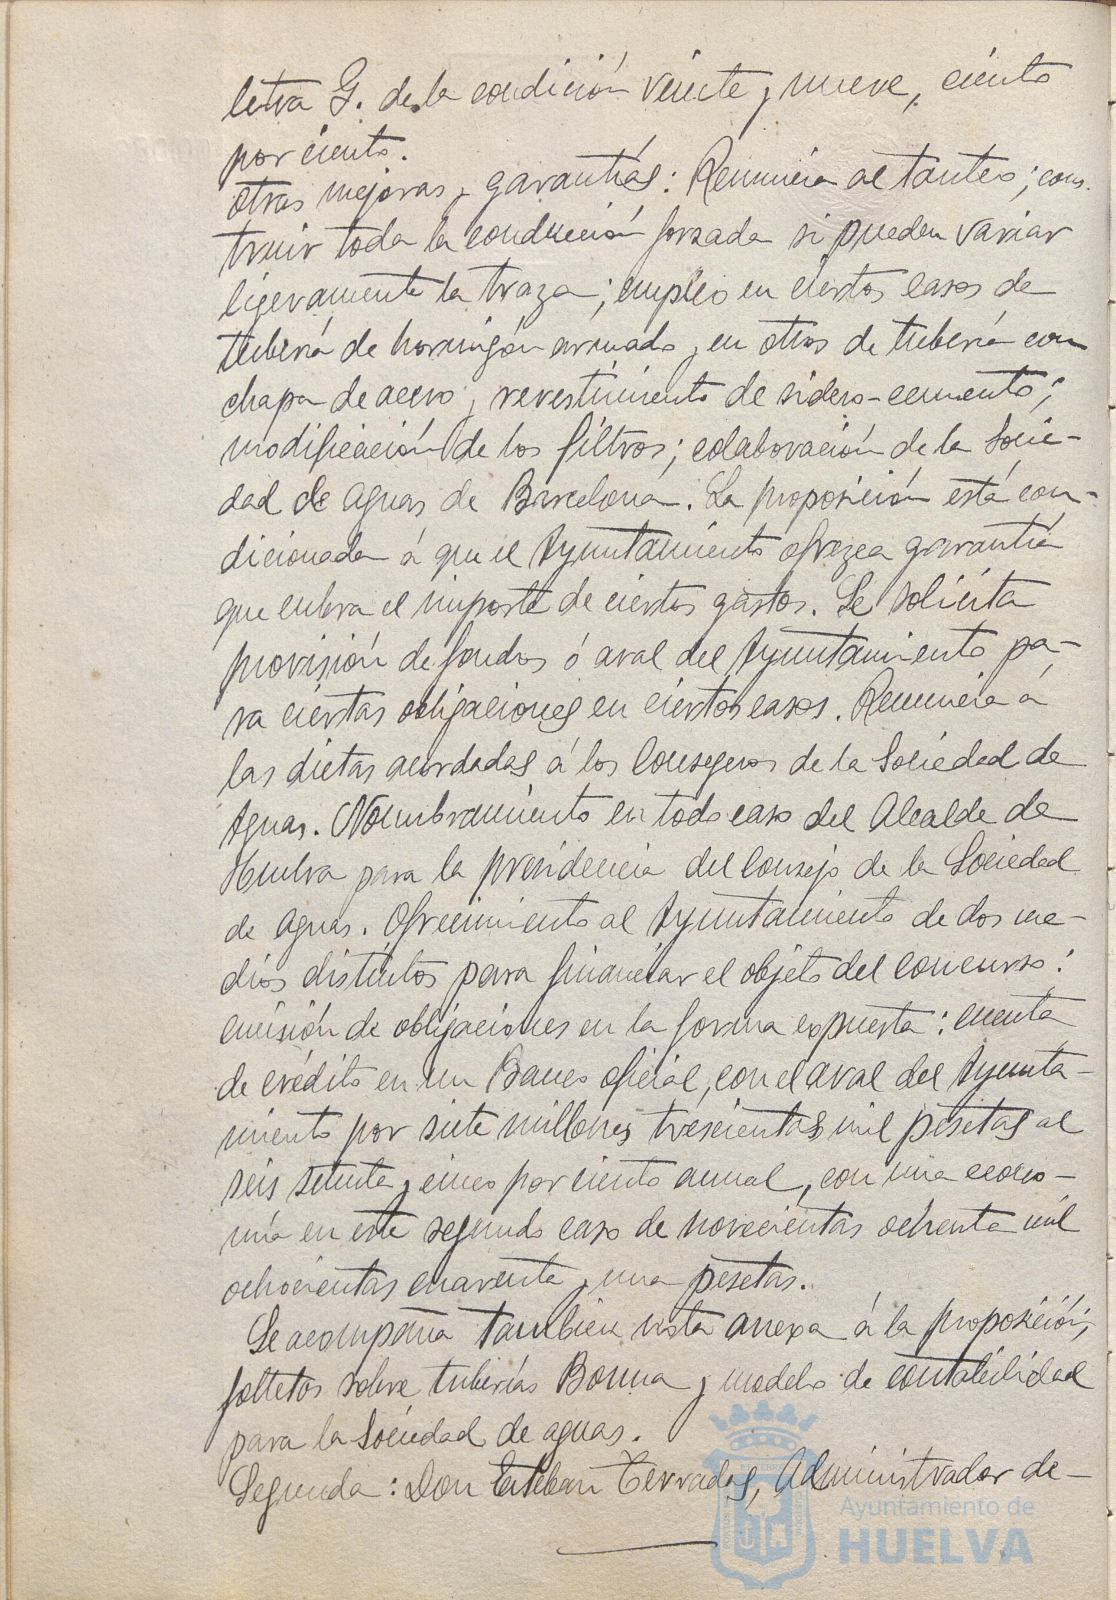 letra G. de la condición veinte y nueve, ciento
por ciento.
otras mejoras y garantías: Renuncia al tanteo; cons-
truir toda la conducción forzada si pueden variar
ligeramente la traza; empleo en ciertos casos de
tubería de hormigón armado y en otros de tubería con
chapa de acero y revestimiento de sidero-cemento;
modificación de los filtros; colaboración de la Socie-
dad de Aguas de Barcelona. La proposición está con-
dicionada á que el Ayuntamiento ofrezca garantía
que cubra el importe de ciertos gastos. Se solicita
provisión de fondos ó aval del Ayuntamiento pa-
ra ciertas obligaciones en ciertos casos. Renuncia á
las dietas acordadas á los Consejeros de la Sociedad de
Aguas. Nombramiento en todo caso del Alcalde de
Huelva para la presidencia del Consejo de la Sociedad
de Aguas. Ofrecimiento al Ayuntamiento de dos me-
dios distintos para financiar el objeto del concurso:
emisión de obligaciones en la forma expuesta: cuenta
de crédito en un Banco oficial, con el aval del Ayunta-
miento por siete millones trescientas mil pesetas al
seis setenta y cinco por ciento anual, con una econo-
mía en este segundo caso de novecientas ochenta mil
ochocientas cuarenta y una pesetas.
Se acompaña también nota anexa á la proposición,
folletos sobre tuberías Bonna y modelo de contabilidad
para la Sociedad de aguas.
Segunda: Don Esteban Terradas, Administrador de-
Ayuntamiento de
HUELVA